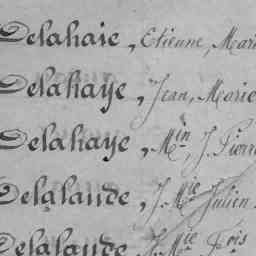 Delahaie, Etienne, Mari
Delahaye, Jean, Marie
Delahaye, Min, J. Pierre
Delalande, J. Mie Julien
Delalande J. Mie Fois